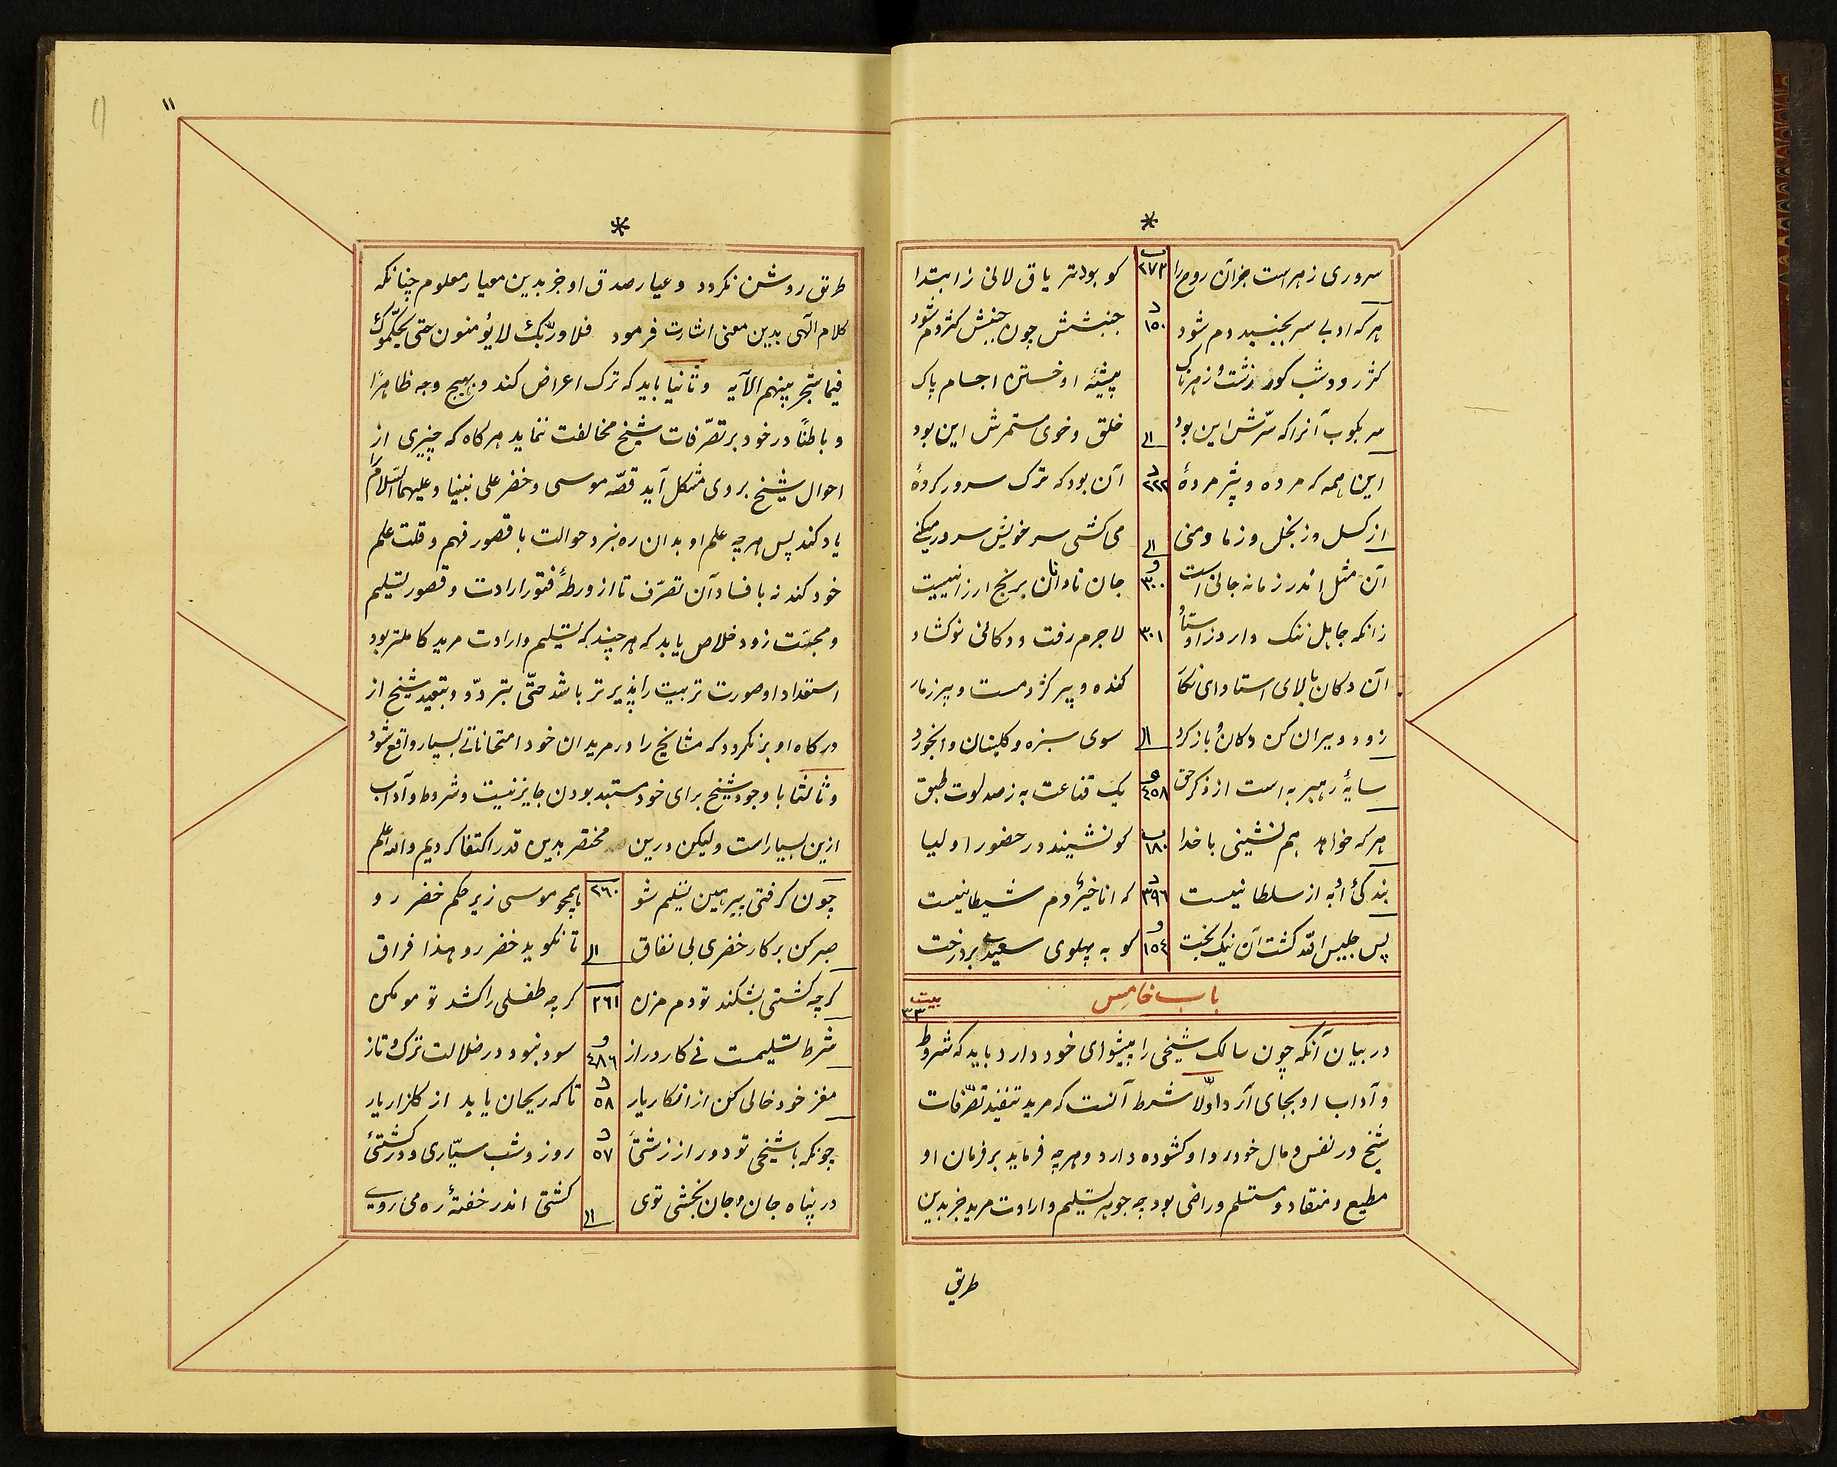 سروری زهر است جز آن روح را ٢٧٣ کو بود تریاق لانی ز ابتدا
هر که او بی سر بجنبد دم شود ١٥٠ جنبشش چون جنبش کژدم شود
کژ رو و شب کور و زشت و زهرناک پیشۀ او خستن اجسام پاک
سر بکوب آنرا که سرّش این بود خلق و خوی مستمرش این بود
این همه که مرده و پژمردۀ ٢٢٢ آن بود که ترک سرور کردۀ
از کسل وز بخل وز ما و منی می کشی سر خویش سرور میکنی
آن مثل اندر زمانه جانی است ٣٠٠ جان نادانان برنج ارزانیست
زانکه جاهل ننک دارد ز اوستاد ٣٠١ لاجرم رفت و دکانی نو کشاد
آن دکان بالای استاد ای نکار کنده و پر کژدمست و پر ز مار
زود ویران کن دکان و باز کرد سوی سبزه و کلبنان و آبخورد
سایۀ رهبر به است از ذکر حق ٤٥٨ یک قناعت به ز صد لوت طبق
هر که خواهد هم نشینی با خدا ١٨٠ کو نشیند در حضور اولیا
بندکی او به از سلطانیست ٣٩٦ که انا خیر دم شیطانیست
پس جلیس الله کشت آن نیک بخت ١٥٤ کو به پهلوی سعیدی برد رخت
باب خامس
بیت ٣٣
در بیان آنکه چون سالک شیخی را پیشوای خود دارد باید که شروط
و آداب او بجای آرد اولّا شرط آنست که مرید تنفیذ تصّرفات
شیخ در نفس و مال خود روا و کشوده دارد و هرچه فرماید بر فرمان او
مطیع و منقاد و مستسلم و راضی بود چه جوهر تسلیم و ارادت مرید جز بدین
طریق
١١
طریق روشن نکردد و عیار صدق او جز بدین معیار معلوم چنانکه
کلام الٓهی بدین معنی اشارت فرمود فلا و ربّک لا یؤمنون حتی یحکّموک
فیما شجر بینهم الآیه و ثانیا باید که ترک اعراض کند و بهیچ وجه ظاهرًا
و باطنًا در خود بر تصرّفات شیخ مخالفت ننماید هر کاه که چیزی از
احوال شیخ بر وی مشکل آید قصّه موسی و خضر علی نبینا و علیهما السّلام را
یاد کند پس هرچه علم او بدان ره نبرد حوالت با قصور فهم و قلت علم
خود کند نه با فساد آن تصرّف تا از ورطۀ فتور ارادت و قصور تسلیم
و محبّت زود خلاص یابد که هر چند که تسلیم و ارادت مرید کاملتر بود
استعداد او صورت تربیت را پذیرتر باشد حتّی بتردّد و تبعید شیخ از
درکاه او بر نکردد که مشایخ را در مریدان خود امتحاناتی بسیار واقع شود
و ثالثا با وجود شیخ برای خود مستبد بودن جایز نیست و شروط و آداب
ازین بسیار است ولیکن درین مختصر بدین قدر اکتفا کردیم والله اعلم
چون کرفتی پیر هین تسلیم شو ٢٦٠ همچو موسی زیر حکم خضر رو
صبر کن بر کار خضری بی نفاق تا نکوید خضر رو هذا فراق
کرچه کشتی بشکند تو دم مزن ٢٦١ کرچه طفلی را کشد تو مو مکن
شرط تسلیمست نی کار دراز ٤٨٦ سود نبود در ضلالت ترک و تاز
مغز خود خالی کن از انکار یار ٥٨ تا که ریحان یابد از کلزار یار
چونکه با شیخی تو دور از زشتیٔ ٥٧ روز و شب سیّاری و در کشتیٔ
در پناه جان و جان بخشی توی کشتی اندر خفتۀ ره می روی